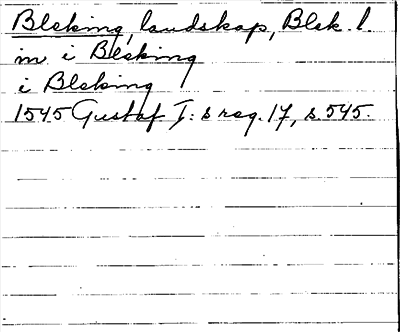 Bleking, landskap, Blek. l.
in i Bleking
i Bleking
1545 Gustaf I:s reg. 17, s. 545.